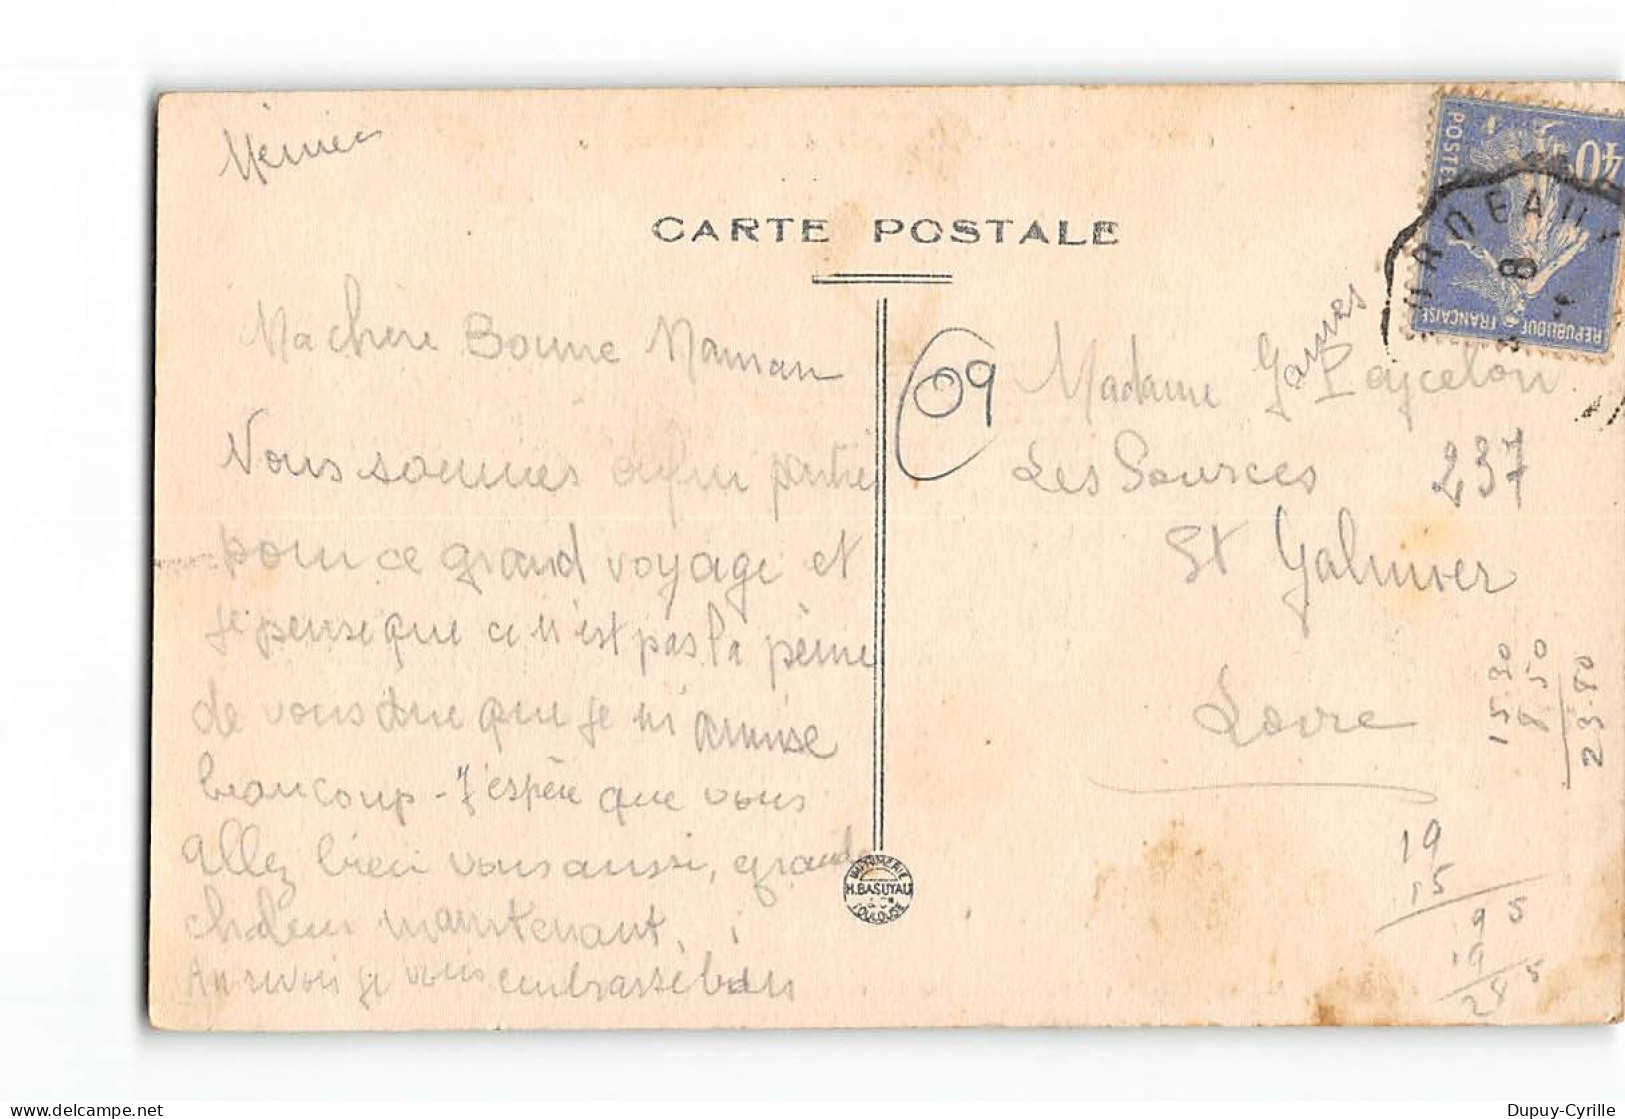 CARTE POSTALE
Ma chère Bonne Maman
Nous sommes enfin partie
pour ce grand voyage et
je pense que ce n'est pas la peine
de vous dire que je m'amuse
beaucoup - J'espère que vous
allez bien vous aussi, grande
chaleur maintenant.
Au revoir je vous embrasse bien
09
Madame Games Peycelon
Les Sources
237
St Galmier
Loire
15.30
8.50
23.80
19
15
95
19
285
POSTES
40c
REPUBLIQUE FRANÇAISE
BORDEAUX
8
IMPRIMERIE
H. BASUYAU
& Cie
TOULOUSE
Dupuy-Cyrille